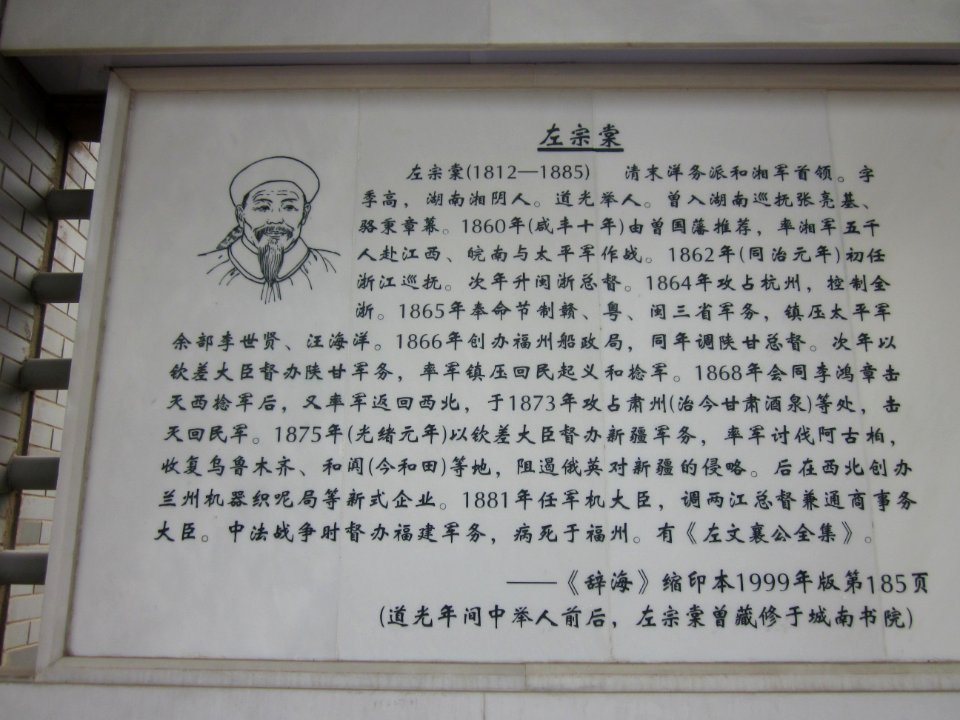 左宗棠
左宗棠(1812—1885) 清末洋务派和湘军首领。字
季高，湖南湘阴人。道光举人。曾入湖南巡抚张亮基、
骆秉章幕。1860年(咸丰十年)由曾国藩推荐，率湘军五千
人赴江西、皖南与太平军作战。1862年(同治元年)初任
浙江巡抚。次年升闽浙总督。1864年攻占杭州，控制全
浙。1865年奉命节制赣、粤、闽三省军务，镇压太平军
余部李世贤、汪海洋。1866年创办福州船政局，同年调陕甘总督。次年以
钦差大臣督办陕甘军务，率军镇压回民起义和捻军。1868年会同李鸿章击
灭西捻军后，又率军返回西北，于1873年攻占肃州(治今甘肃酒泉)等处，击
灭回民军。1875年(光绪元年)以钦差大臣督办新疆军务，率军讨伐阿古柏，
收复乌鲁木齐、和阗(今和田)等地，阻遏俄英对新疆的侵略。后在西北创办
兰州机器织呢局等新式企业。1881年任军机大臣，调两江总督兼通商事务
大臣。中法战争时督办福建军务，病死于福州。有《左文襄公全集》。
——《辞海》缩印本1999年版第185页
(道光年间中举人前后，左宗棠曾藏修于城南书院)